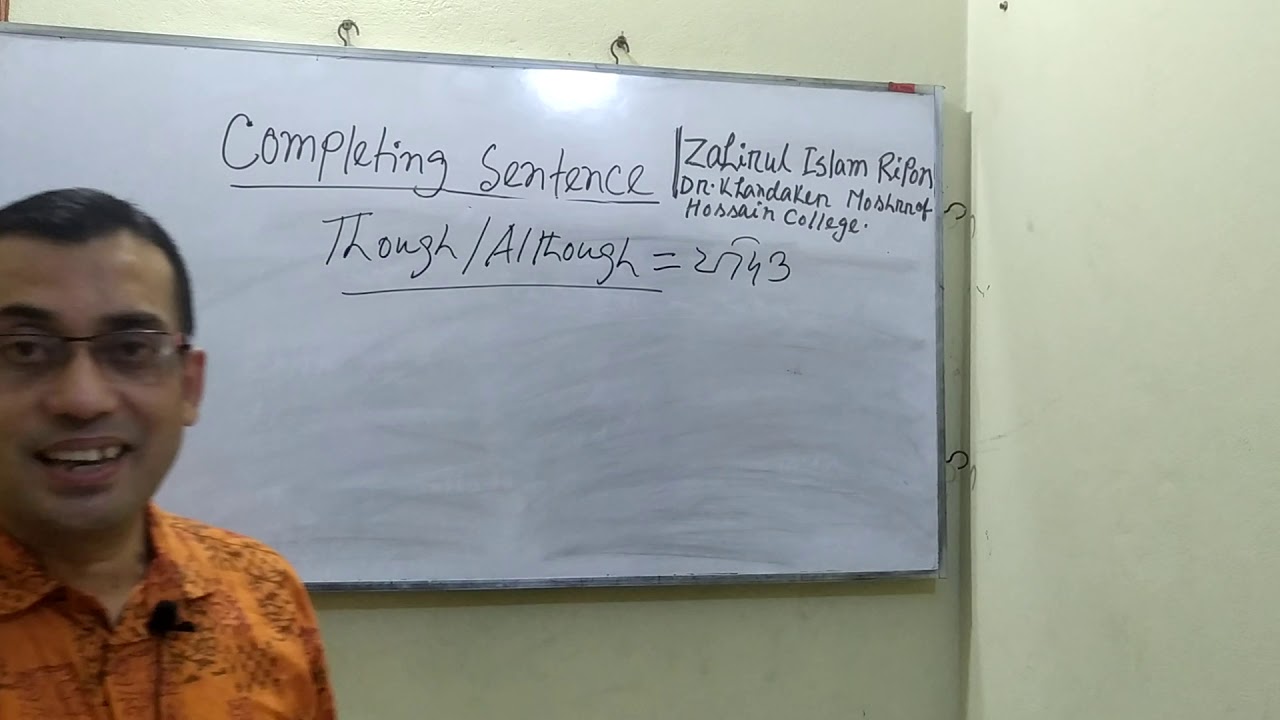 Completing Sentence
Though/Although = যদিও
Zahirul Islam Ripon
Dr. Khandaker Moshrrof
Hossain College.